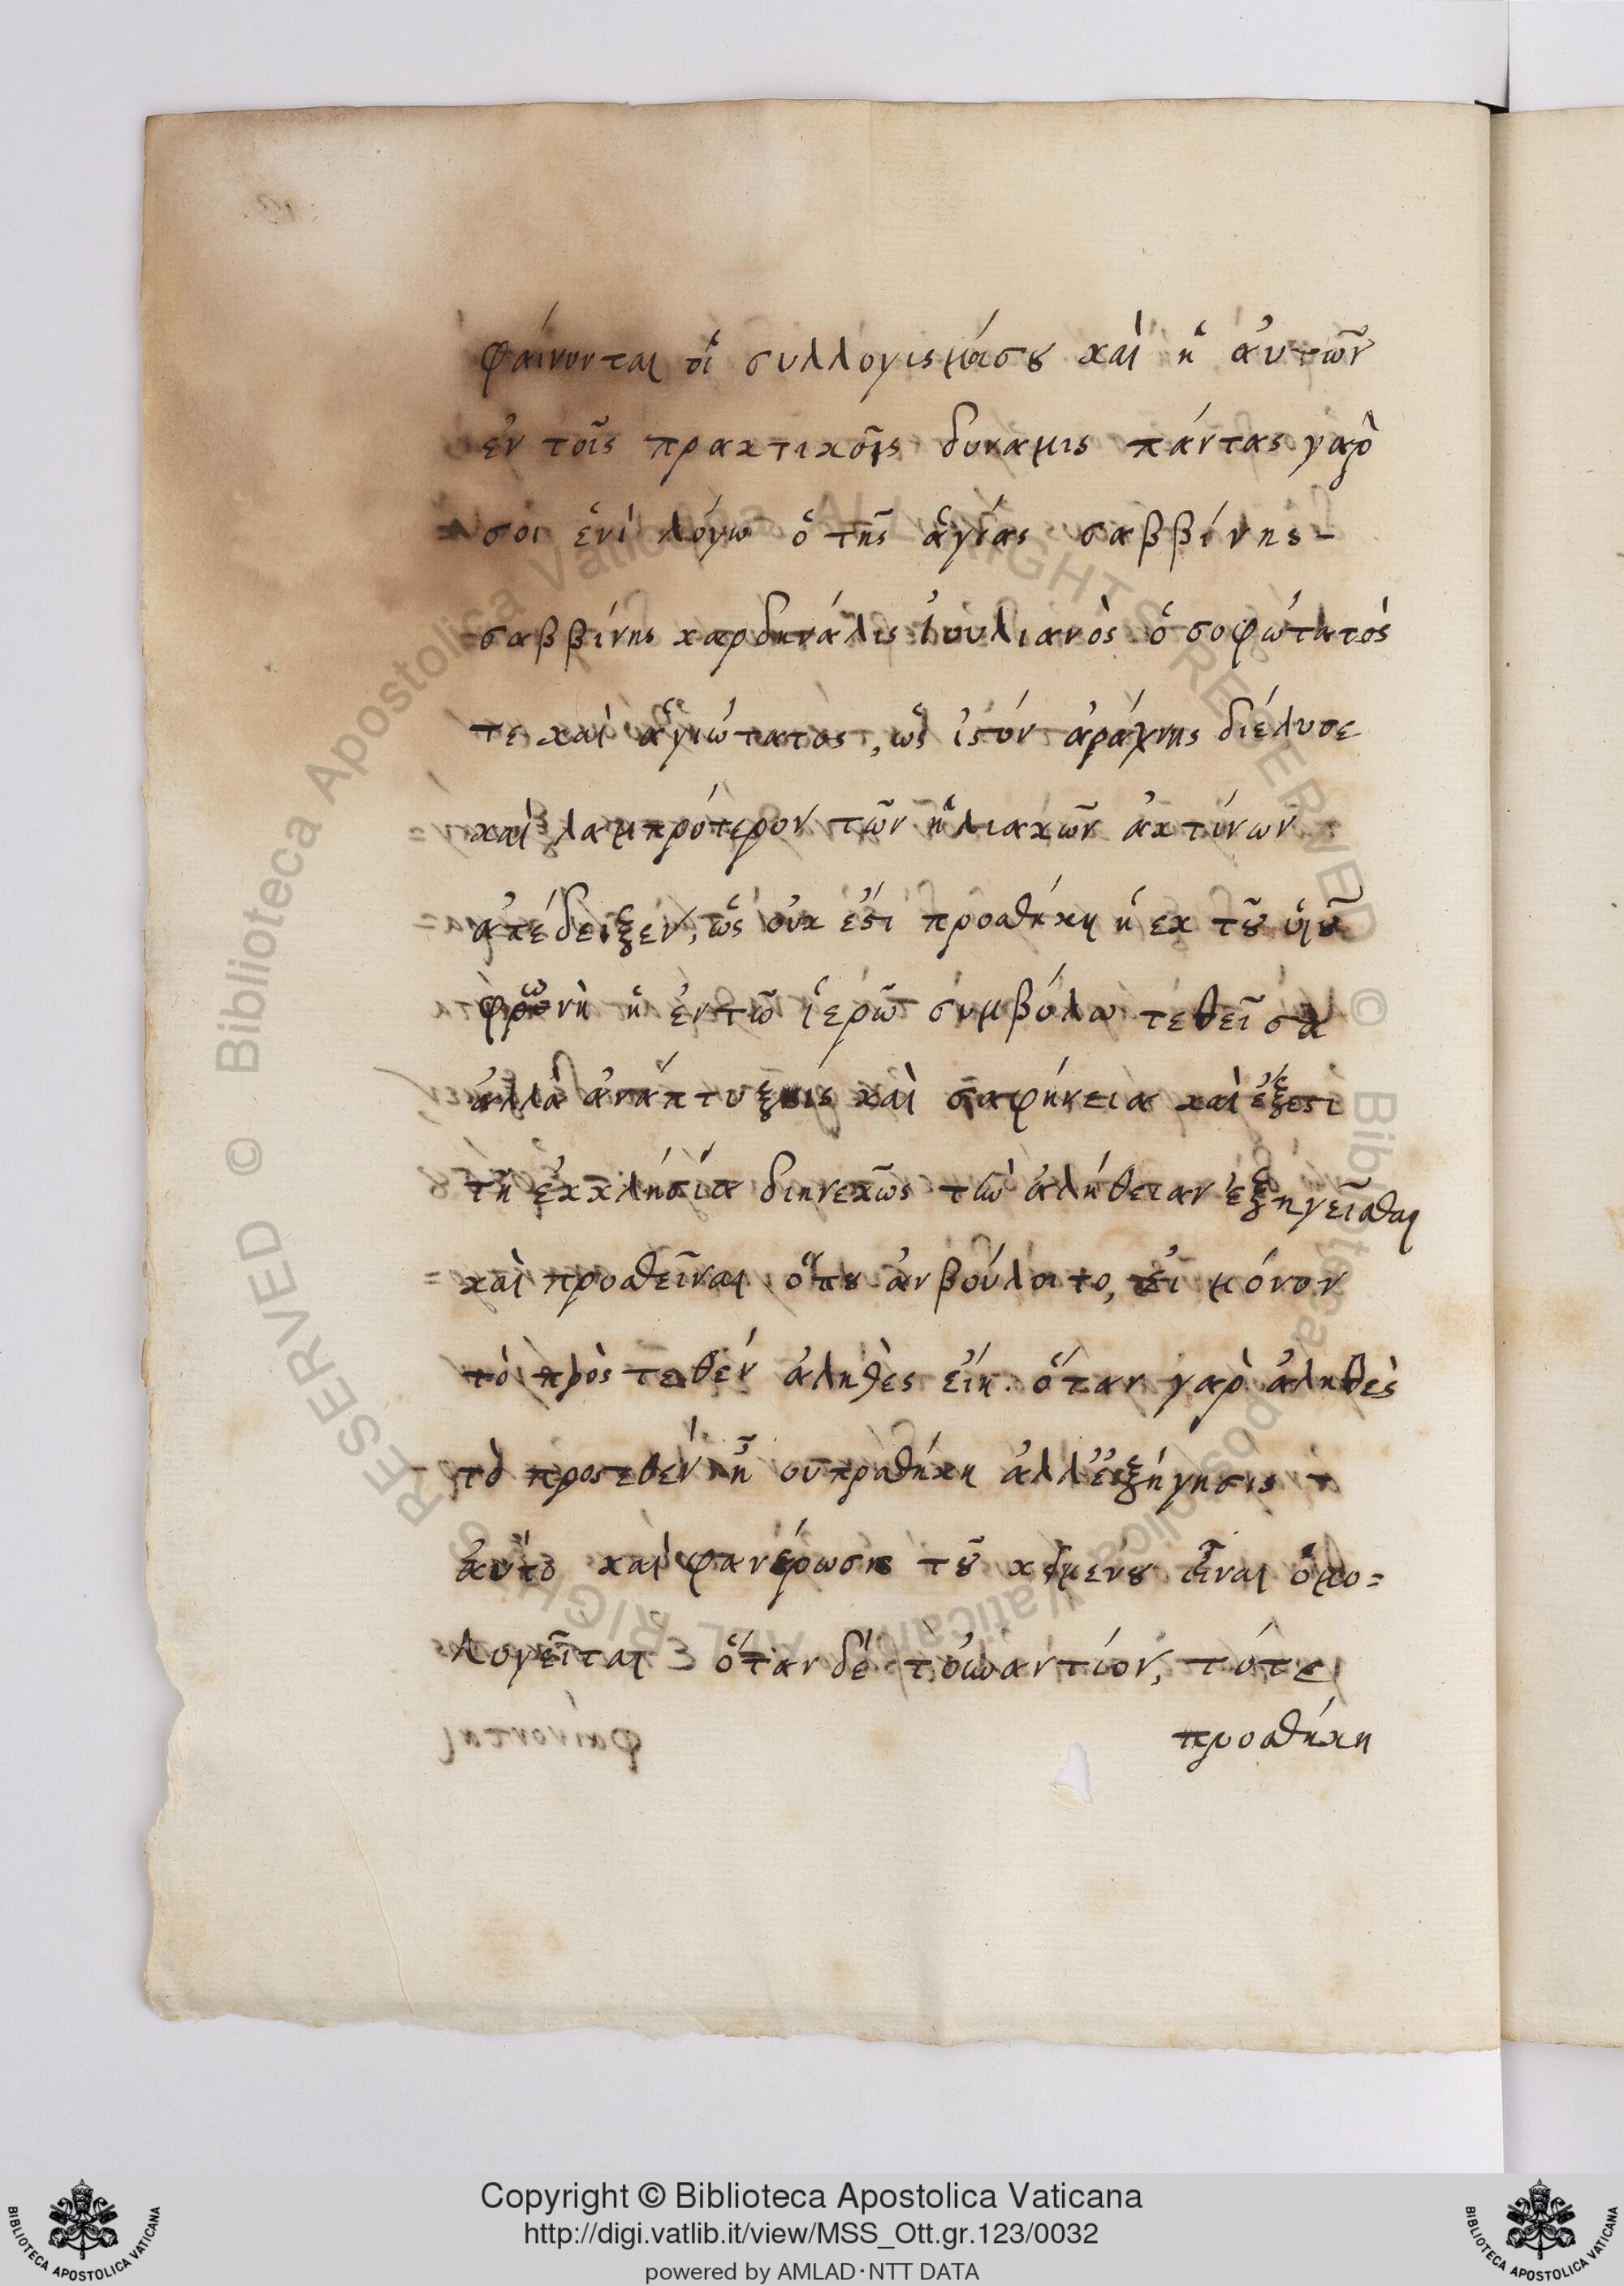 φαίνονται οἵ συλλογισμόισου καὶ ἡ ἀυτῶν
ἐν τοῖς πρακτικοῖς δυναμις πάντας γαρ
σοι ἑνὶ λόγω ὁ τῆς ἁγίας σαββίνης-
σαββίνης καρδηνάλις Ἰουλιανὸς ὁ σοφώτατός
τε καὶ ἁγιώτατος, ὡς ἱστόν ἀράχνης διέλυσε
καὶ λαμπρότερον τῶν ἡλιακῶν ἀκτίνων
ἀπέδειξεν, ὡς οὐκ ἔστι προσθήκη ἡ εκ τοῦ ὑιοῦ
φωνὴ ἡ ἐν τῶ ἱερῶ συμβόλω τεθεῖσα
ἀλλὰ ἀνάπτυξις καὶ σαφήνεια καὶ ἔξεστι
τῆ ἐκκλησία διηνεκῶς τὴν ἀλήθειαν ἐξηγεῖσθαι
καὶ προσθεῖναι ὅπου ἀν βούλοιτο, εἰ μόνον
τὸ πρὸς τεθέν ἀληθὲς εἴη. ὅταν γαρ ἀληθὲς
τὸ προστεθέν ἦ ου προσθήκη ἀλλ ἐξήγησις
ἀυτὸ καὶ φανέρωσις τοῦ κειμένου εἶναι ὁμο=
λογεῖται ὅταν δὲ τοὐναντίον, τότε
προσθήκη
Copyright © Biblioteca Apostolica Vaticana
http://digi.vatlib.it/view/MSS_Ott.gr.123/0032
powered by AMLAD·NTT DATA
BIBLIOTECA APOSTOLICA VATICANA
BIBLIOTECA APOSTOLICA VATICANA